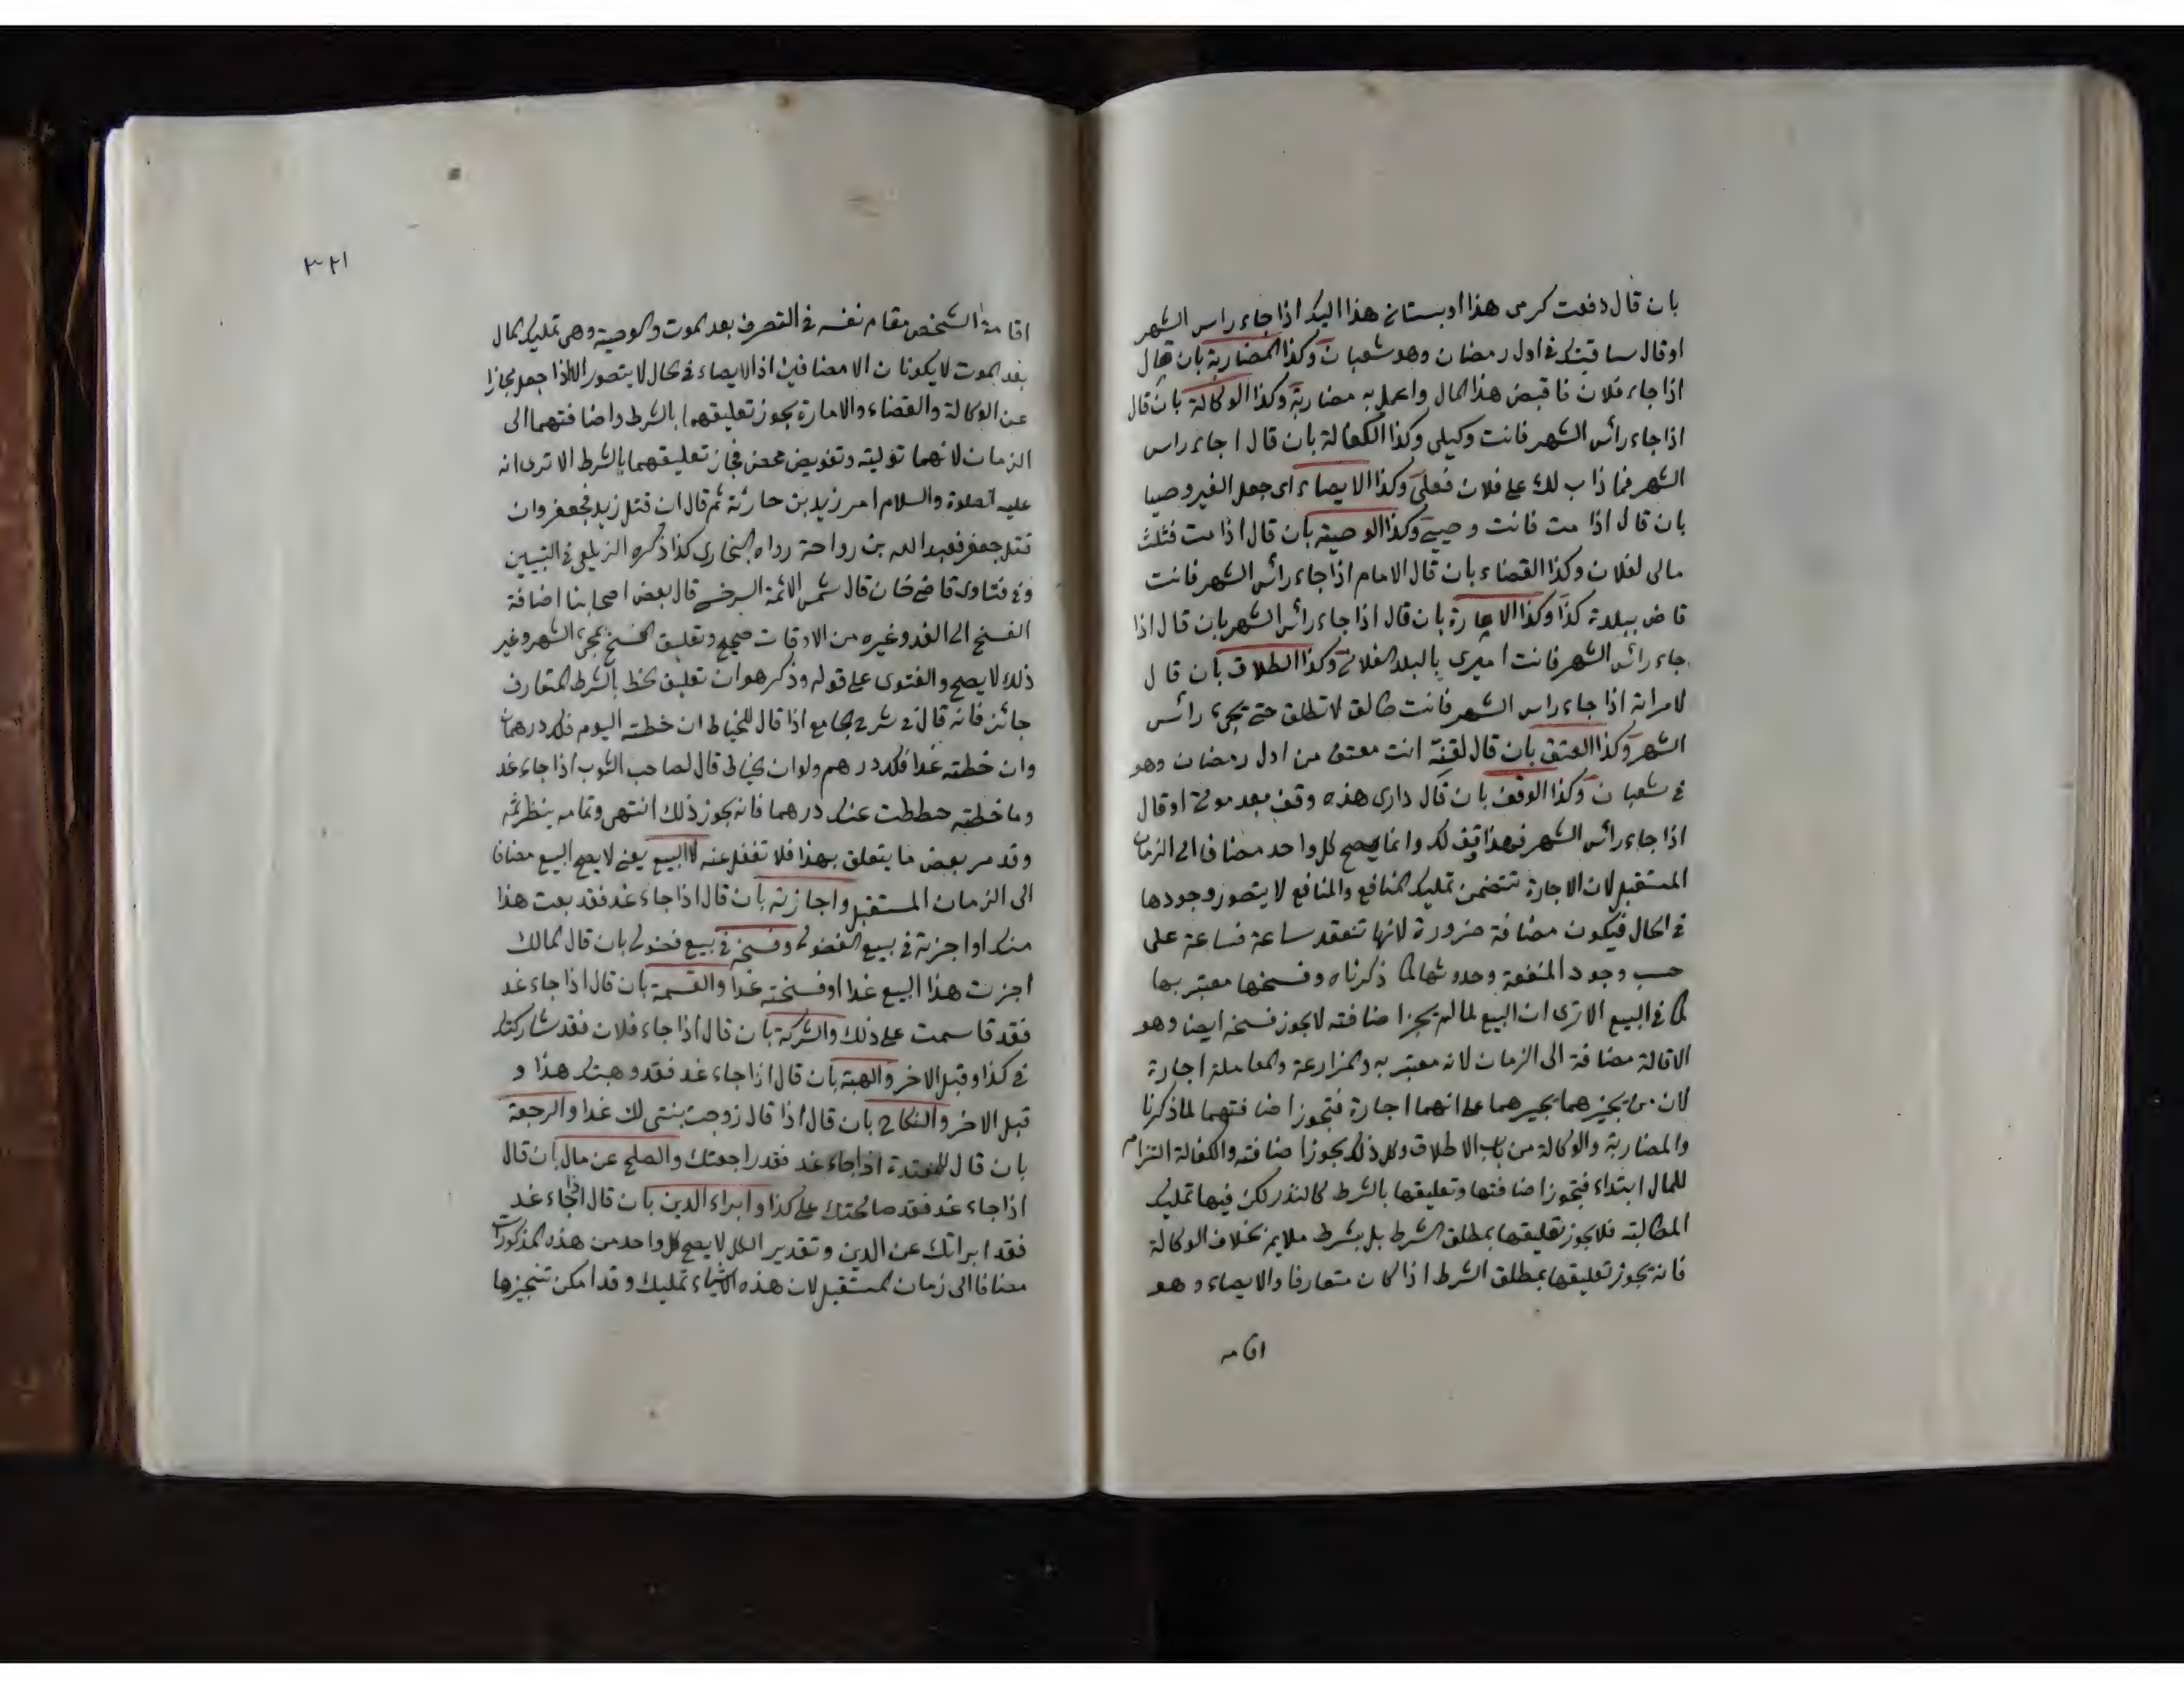 بان قال دفعت كرمى هذا او بستانى هذا اليك اذا جاء راس الشهر
او قال ساقيتك فى اول رمضان وهو شعبان وكذا المضاربة بان قال
اذا جاء فلان فاقبض هذا المال واعمل به مضاربة وكذا الوكالة بان قال
اذا جاء رأس الشهر فانت وكيلى وكذا الكفالة بان قال اجاء راس
الشهر فما ذاب لك على فلان فعلى وكذا الايصاء اى جعل الغير وصيا
بان قال اذا مت فانت وصيى وكذا الوصية بان قال اذا مت فثلث
مالى لفلان وكذا القضاء بان قال الامام اذا جاء رأس الشهر فانت
قاض ببلدة كذا وكذا الامارة بان قال اذا جاء رأس الشهر بان قال اذا
جاء رأس الشهر فانت اميرى بالبلد الفلانى وكذا الطلاق بان قال
لامراته اذا جاء راس الشهر فانت طالق لا تطلق حتى يجىء رأس
الشهر وكذا العتق بان قال لقنه انت معتق من اول رمضان وهو
فى شعبان وكذا الوقف بان قال دارى هذه وقف بعد موتى او قال
اذا جاء رأس الشهر فهذا وقف لك وانما يصح كل واحد مضافا الى الزمان
المستقبل لان الاجارة تتضمن تمليك المنافع والمنافع لا يتصور وجودها
فى الحال فيكون مضافة ضرورة لانها تنعقد ساعة فساعة على
حسب وجود المنفعة وحدوثها كما ذكرناه وفسخها معتبر بها
كما فى البيع الا ترى ان البيع لما لم يجز اضافته لا يجوز فسخه ايضا وهو
الاقالة مضافة الى الزمان لانه معتبر به والمزارعة والمعاملة اجارة
لان من يجيزهما يجيزهما على انهما اجارة فتجوز اضافتهما لما ذكرنا
والمضاربة والوكالة من باب الاطلاق وكل ذلك يجوز اضافته والكفالة التزام
للمال ابتداء فتجوز اضافتها وتعليقها بالشرط كالنذر لكن فيها تمليك
المطالبة فلا يجوز تعليقها بمطلق الشرط بل بشرط ملايم بخلاف الوكالة
فانه يجوز تعليقها بمطلق الشرط اذا كان متعارفا والايصاء وهو
اقامه
٣٢١
اقامة الشخص مقام نفسه فى التصرف بعد الموت والوصية وهى تمليك المال
بعد الموت لا يكونان الا مضافين اذ الايصاء فى الحال لا يتصور الا اذا جعل مجازا
عن الوكالة والقضاء والامارة يجوز تعليقهما بالشرط واضافتهما الى
الزمان لانهما تولية وتفويض محض فجاز تعليقهما بالشرط الا ترى انه
عليه الصلوة والسلام امر زيد بن حارثة ثم قال ان قتل زيد فجعفر وان
قتل جعفر فعبد الله بن رواحة رواه البخارى كذا ذكره الزيلعى فى التبيين
وفى فتاوى قاضى خان قال شمس الائمة السرخسى قال بعض اصحابنا اضافة
الفسخ الى الغد وغيره من الاوقات صحيح وتعليق الفسخ بمجىء الشهر وغير
ذلك لا يصح والفتوى على قوله وذكر هو ان تعليق الحط بالشرط المتعارف
جائز فانه قال فى شرح الجامع اذا قال للخياط ان خطته اليوم فلك درهمان
وان خطته غدا فلك درهم ولو ان الخياط قال لصاحب الثوب اذا جاء غد
وما خطته حططت عنك درهما فانه يجوز ذلك انتهى وتمامه ينظر ثمه
وقد مر بعض ما يتعلق بهذا فلا تغفل عنه لا البيع يعنى لا يصح البيع مضافا
الى الزمان المستقبل واجازته بان قال اذا جاء غد فقد بعت هذا
منك او اجزته فى بيع الفضولى وفسخه فى بيع فضولى بان قال المالك
اجزت هذا البيع غدا او فسخته غدا والقسمة بان قال اذا جاء غد
فقد قاسمت على ذلك والشركة بان قال اذا جاء فلان فقد شاركتك
فى كذا وقبل الاخر والهبة بان قال اذا جاء غد فقد وهبتك هذا و
قبل الاخر والنكاح بان قال اذا قال زوجت بنتى لك غدا والرجعة
بان قال للمعتدة اذا جاء غد فقد راجعتك والصلح عن مال بان قال
اذا جاء غد فقد صالحتك على كذا وابراء الدين بان قال اذا جاء غد
فقد ابراتك عن الدين وتقدير الكل لا يصح كل واحد من هذه المذكورات
مضافا الى زمان المستقبل لان هذه الاشياء تمليك وقد امكن تنجيزها